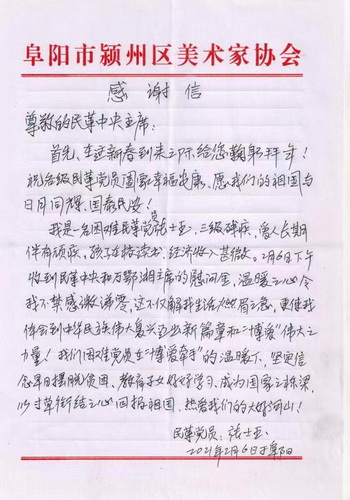 阜阳市颍州区美术家协会
感谢信
尊敬的民革中央主席：
首先，在迎新春到来之际给您鞠躬拜年！
祝各级民革党员阖家幸福安康、愿我们的祖国与
日月同辉、国泰民安！
我是一名困难民革党员张士玉，三级残疾，
伴有顽疾，孩子在校读书，经济收入菲微。2月6日下午
收到民革中央和万鄂湘主席的慰问金，温暖之心令
我不禁感激涕零，这不仅解我生活燃眉之急，更使我
体会到中华民族伟大复兴 新篇章和"博爱"伟大之
力量！我们困难党员在"博爱牵手"的温暖下，坚定信
念早日摆脱贫困、教育子女好好学习，成为国家之栋梁，
以寸草衔结之心回报祖国，热爱我们的大好河山！
民革党员：张士玉
2021年2月6日于阜阳